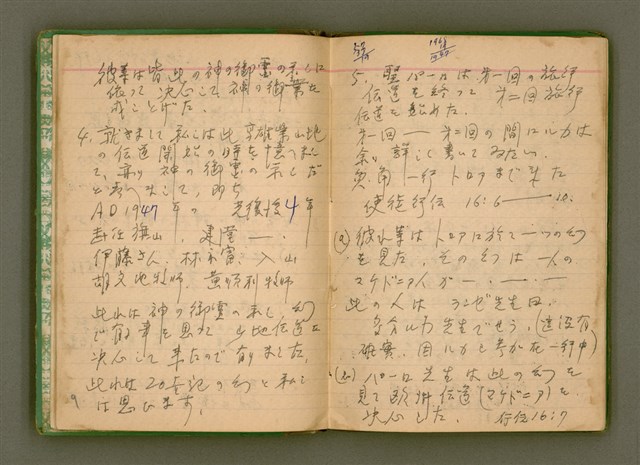 彼等は皆此の神の御霊の示しに
依って決心して神の御業を
成しとげた。
4. 就きまして私は此 山地
の伝道開始の時を憶へまし
て、 神の御霊の示しだ
と
AD 1947年の 光復後4年
赴任旗山、建堂 ——.
伊藤さん、林 、入山
胡文池牧師、黄 牧師
此れは神の御霊の示し、幻
で有る事を思れ 山地伝道を
決心して来たので有りました
此れは20世記の幻と私
は思ひます。
9
1968
5. 聖パーロは第一回の旅行
伝道を終って 第二回旅行
伝道を始めた。
第一回 — 第二回の間にルカは
余り詳しく書いてゐない。
一行トロアまで来た
使徒行伝 16:6 —— 10.
(a) 彼れ等はトロアに於て一つの幻
を見た、その幻は一人の
マケドニア人が — . — . —
此の人は ランゼ先生曰、
多分ルカ先生でせう、(還没有
確実、因ルカも考が在一行中)
(b) パーロ先生は此の幻を
見て欧州伝道(マケドニア)を
決心した。 行伝16:7